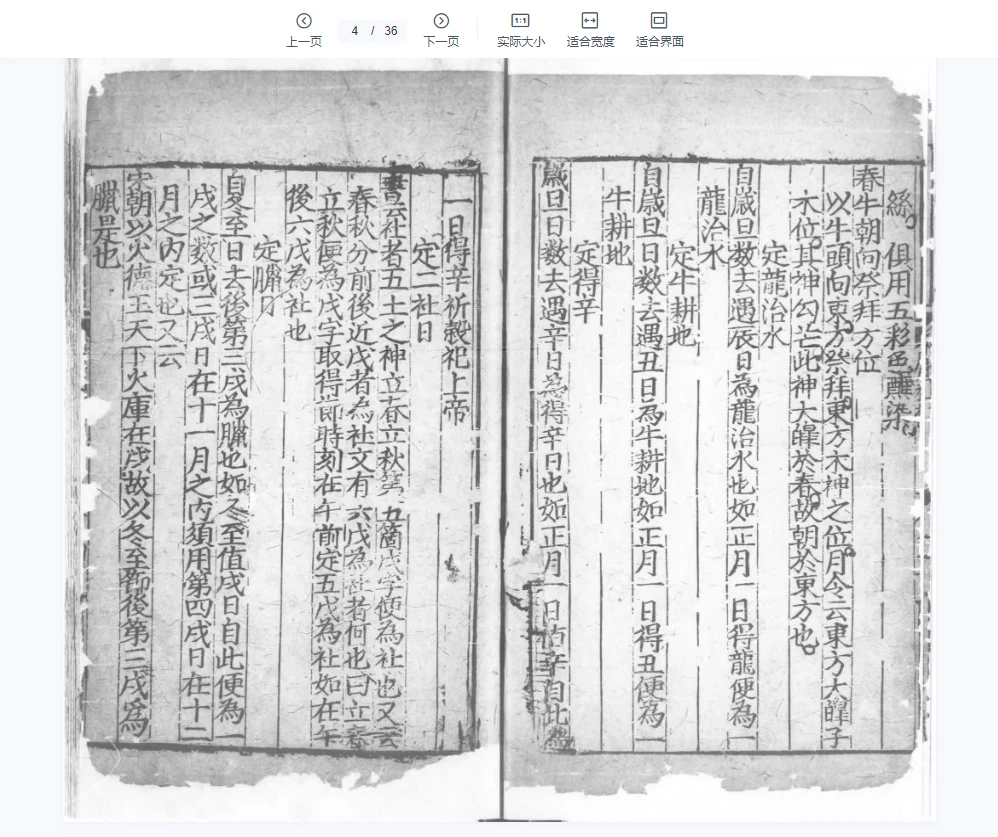 上一页
4 / 36
下一页
1:1
实际大小
适合宽度
适合界面
絲俱用五彩色醮染
春牛朝向祭拜方位
以牛頭向東方祭拜東方木神之位月令云東方大皥子
木位其神勾芒此神大皥於春故朝於東方也
定龍治水
自歳旦数去遇辰日為龍治水也如正月一日得龍便為一
龍治水
定牛耕地
自歳旦日数去遇丑日為牛耕地如正月一日得丑便為一
牛耕地
定得辛
歳旦日数去遇辛日為得辛日也如正月一日
辛自此
一日得辛祈穀祀上帝
定二社日
書云社者五土之神立春立秋第五箇戊字便為社也又云
春秋分前後近戊者為社文有六戊為社者何也曰立春
立秋便為戊字取得節時刻在午前定五戊為社如在午
後六戊為社也
定臘
自夏至日去後第三戌為臘也如冬至值戌日自此便為一
戌之数或三戌日在十一月之内須用第四戌日在十二
月之内定也又云
宋朝以火德王天下火庫在戌故以冬至節後第三戌為
臘是也